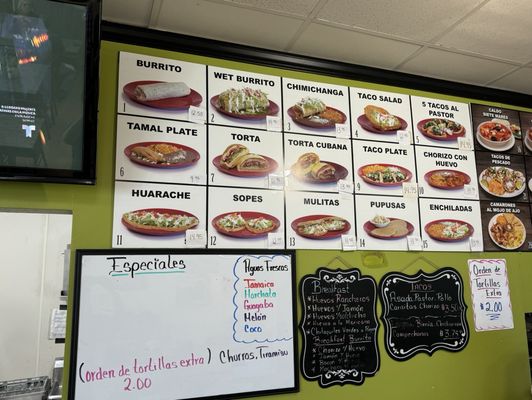 BURRITO
WET BURRITO
CHIMICHANGA
TACO SALAD
5 TACOS AL PASTOR
CALDO SIETE MARES
1
2
3
4
5
TAMAL PLATE
TORTA
TORTA CUBANA
TACO PLATE
CHORIZO CON HUEVO
TACOS DE PESCADO
6
7
8
9
10
HUARACHE
SOPES
MULITAS
PUPUSAS
ENCHILADAS
CAMARONES AL MOJO DE AJO
11
12
13
14
15
Especiales
(orden de tortillas extra)
2.00
Aguas Frescas
Jamaica
Horchata
Guayaba
Melón
Coco
Churros, Tiramisu
Breakfast
Huevos Rancheros
Huevos y Jamón
Huevos y Machaca
Huevos a la Mexicana
Breakfast Burrito
Chorizo y Huevo
Tacos
Asada, Pastor, Pollo
Carnitas, Chorizo
$3.50
Birria
Campechanos
$3.74
Orden de
tortillas
Extra
$2.00